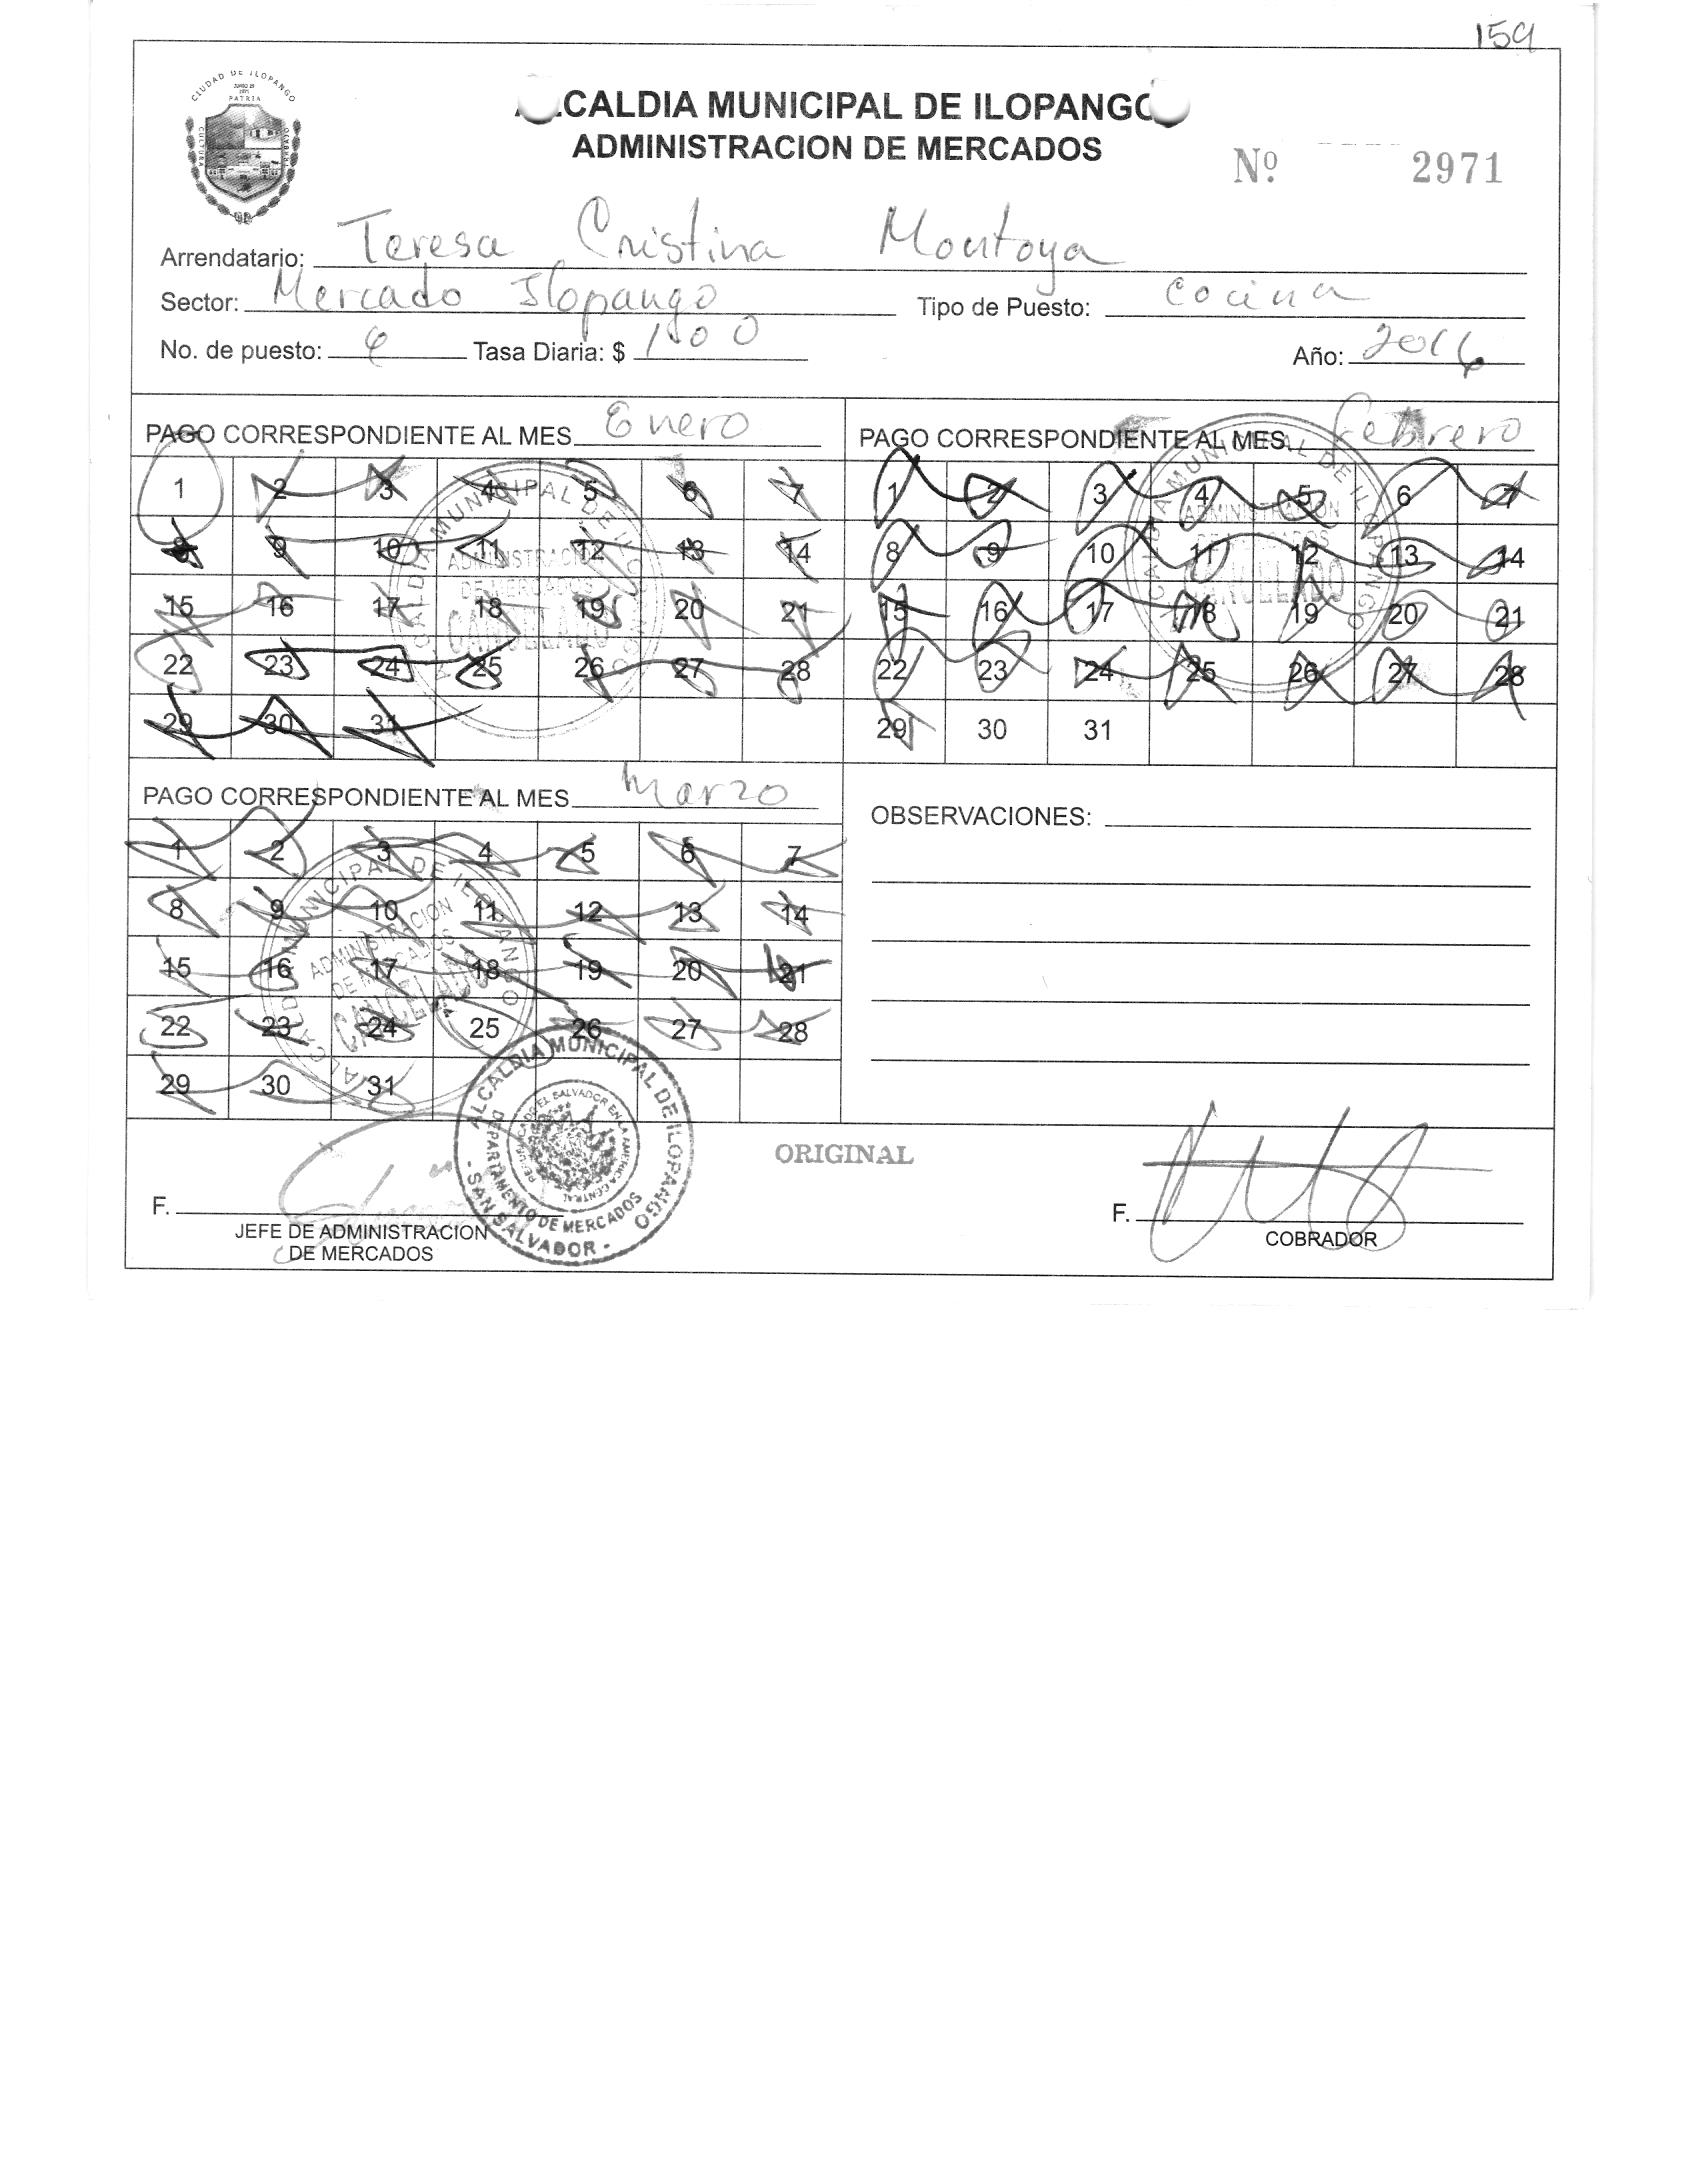 159
ALCALDIA MUNICIPAL DE ILOPANGO
ADMINISTRACION DE MERCADOS
Nº 2971
CIUDAD DE ILOPANGO
PATRIA
CULTURA
Arrendatario: Teresa Cristina Montoya
Sector: Mercado Ilopango Tipo de Puesto: Cocina
No. de puesto: Tasa Diaria: $ 1.00 Año: 2016
PAGO CORRESPONDIENTE AL MES Enero
1 2 3 4 5 6 7
8 9 10 11 12 13 14
15 16 17 18 19 20 21
22 23 24 25 26 27 28
29 30 31
ALCALDIA MUNICIPAL DE ILOPANGO
ADMINISTRACION
DE MERCADOS
CANCELADO
PAGO CORRESPONDIENTE AL MES Febrero
1 2 3 4 5 6 7
8 9 10 11 12 13 14
15 16 17 18 19 20 21
22 23 24 25 26 27 28
29 30 31
ALCALDIA MUNICIPAL DE ILOPANGO
ADMINISTRACION
DE MERCADOS
CANCELADO
PAGO CORRESPONDIENTE AL MES Marzo
1 2 3 4 5 6 7
8 9 10 11 12 13 14
15 16 17 18 19 20 21
22 23 24 25 26 27 28
29 30 31
ALCALDIA MUNICIPAL DE ILOPANGO
ADMINISTRACION
DE MERCADOS
CANCELADO
OBSERVACIONES:
ALCALDIA MUNICIPAL DE ILOPANGO
DEPARTAMENTO DE MERCADOS
- SAN SALVADOR -
ORIGINAL
F.
JEFE DE ADMINISTRACION
DE MERCADOS
F.
COBRADOR